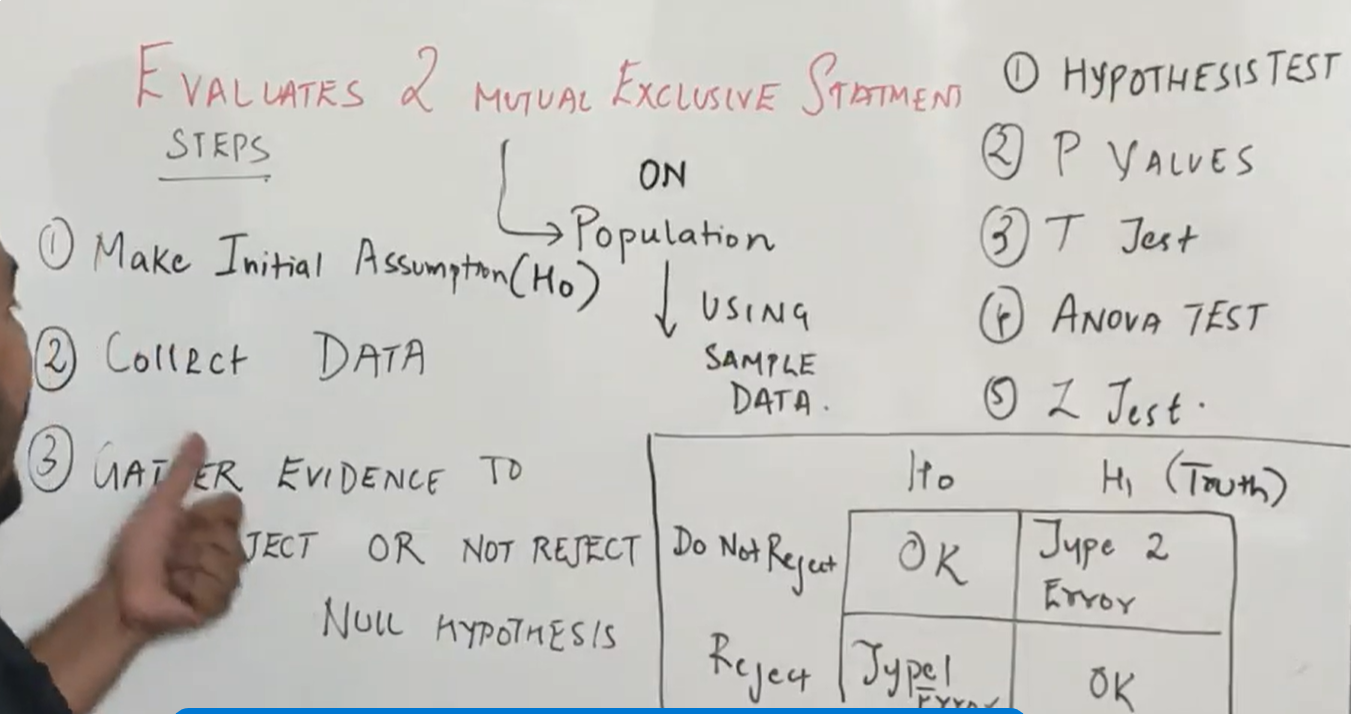 EVALUATES 2 MUTUAL EXCLUSIVE STATMENT
STEPS
ON
Population
USING
SAMPLE
DATA.
① Make Initial Assumption (Ho)
② Collect DATA
③ GATHER EVIDENCE TO
JECT OR NOT REJECT
NULL HYPOTHESIS
① HYPOTHESIS TEST
② P VALUES
③ T Test
④ ANOVA TEST
⑤ Z Test.
Ho H₁ (Truth)
Do Not Reject OK Type 2
Error
Reject Type 1 OK
Error